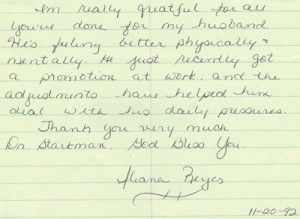 I'm really greatful for all
you've done for my husband.
He's feeling better physically &
mentally. He just recently got
a promotion at work. and the
adjustments have helped him
deal with his daily pressures.
Thank you very much
Dr. Starkman. God Bless You.
Iliana Reyes
11-20-92